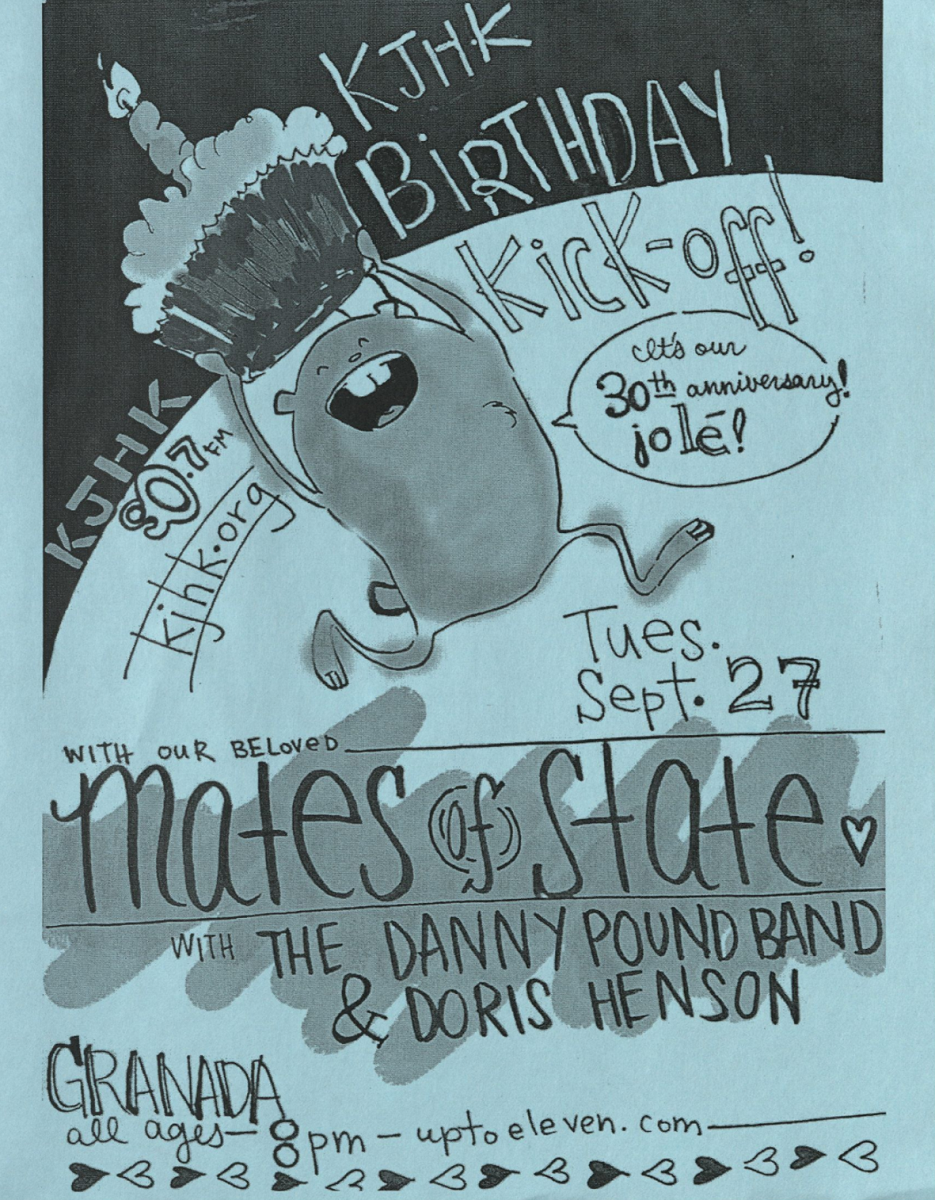 KJHK
BiRTHDAY
KicK-off!
It's our
30th anniversary!
jolé!
KJHK
90.7 FM
kjhk.org
Tues.
Sept. 27
WITH OUR BELoveD
mates of state
WITH THE DANNY POUND BAND
& DORIS HENSON
GRANADA
all ages - 8pm - uptoeleven.com